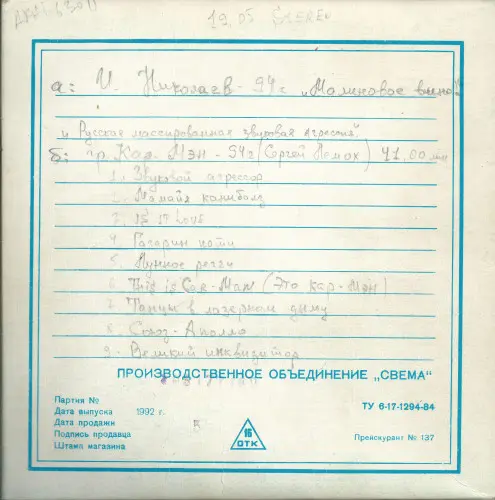 19.05 STEREO
а: И. Николаев - 94 г „Малиновое вино"
и Русская массированная звуковая агрессия
б: гр. Кар-Мэн - 94г (Сергей Лемох) 41.00 мин
1. Звуковой агрессор
2. Мамайя канибалз
3. Is it Love
4. Гагарин пати
5. Лунное регги
6. This is Car-Man (Это кар-мэн)
7. Танцы в лазерном дыму
8. Союз-Аполло
9. Великий инквизитор
ПРОИЗВОДСТВЕННОЕ ОБЪЕДИНЕНИЕ „СВЕМА"
Партия №
Дата выпуска 1992 г.
Дата продажи
Подпись продавца
Штамп магазина
16
ОТК
ТУ 6-17-1294-84
Прейскурант № 137